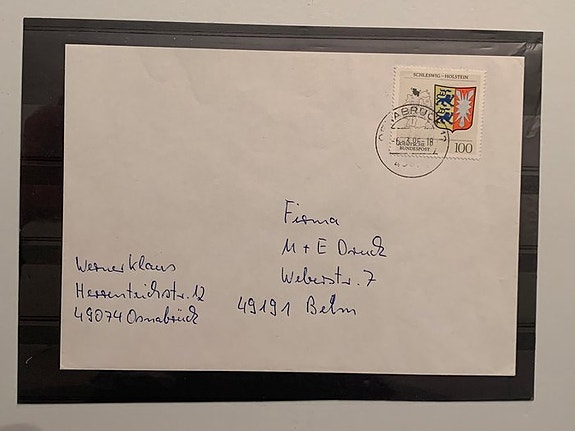 SCHLESWIG - HOLSTEIN
OSNABRÜCK
-6.3.95-18
DEUTSCHE
BUNDESPOST
100
Firma
M + E Druck
Weberstr. 7
49191 Belm
Werner Klaus
Herrenteichstr. 12
49074 Osnabrück